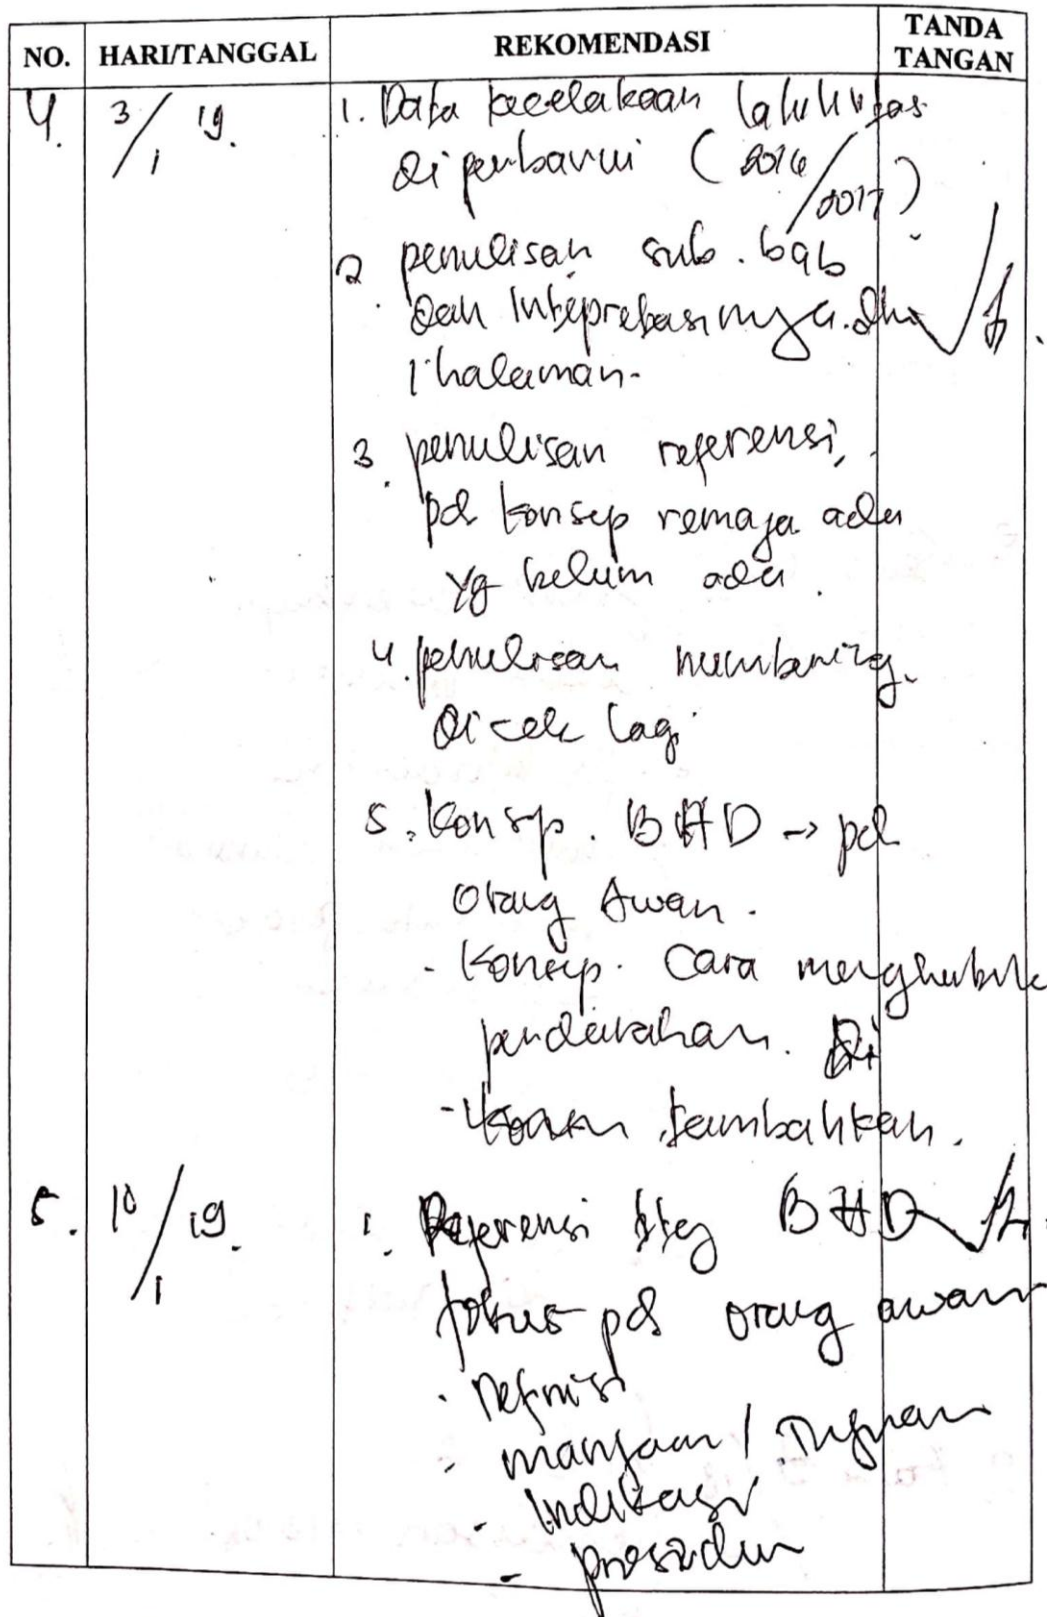 NO. HARI/TANGGAL REKOMENDASI TANDA TANGAN
4. 3/1 19. 1. Data kecelakaan lalulintas
diperbarui (2016/2017)
2. penulisan sub.bab
dan Intepretasinya. dlm
1 halaman.
3. penulisan referensi,
pd konsep remaja ada
yg belum ada.
4. penulisan numbering
dicek lagi
5. Konsep. BHD → pd
Orang Awam.
- Konsep. Cara menghentik
pendarahan. Di
- tambahkan.
5. 10/1 19. 1. Referensi ttg BHD
fokus pd orang awam
- Definisi
- manfaat / Tujuan
- Indikasi
- prosedur